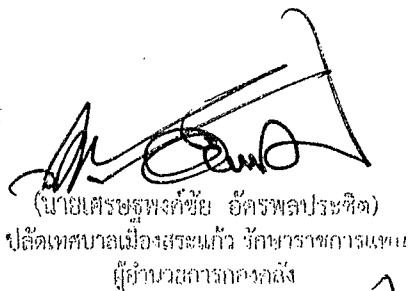 (นายเศรษฐพงศ์ชัย อัครพลประชิต)
ปลัดเทศบาลเมืองสระแก้ว รักษาราชการแทน
ผู้อำนวยการกองคลัง